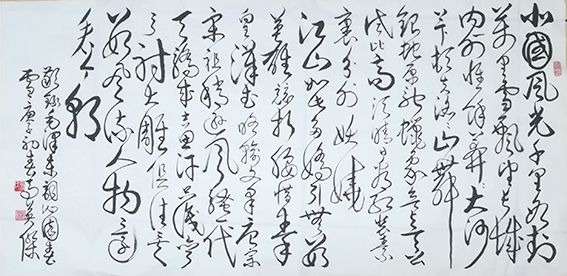 北國風光千里冰封
萬里雪飄望長城
内外惟餘莽莽大河
上下頓失滔滔山舞
銀蛇原馳蠟象欲與天公
試比高須晴日看紅裝素
裹分外妖嬈
江山如此多嬌引無數
英雄競折腰惜秦
皇漢武略輸文采唐宗
宋祖稍遜風騷一代
天驕成吉思汗只識彎
弓射大雕俱往矣
數風流人物還
看今朝
敬錄毛澤東詞沁園春
雪庚子初春英傑